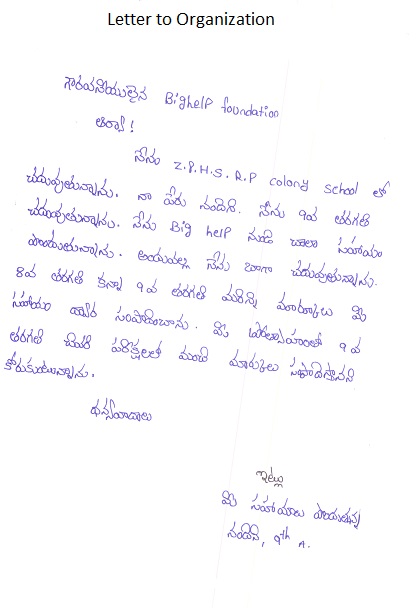 Letter to Organization
గౌరవనీయులైన Bighelp foundation
ఆర్యా!
నేను Z.P.H.S. R.P colony school లో
చదువుతున్నాను. నా పేరు నందిని. నేను 9వ తరగతి
చదువుతున్నాను. నేను Big help నుండి చాలా సహాయం
పొందుతున్నాను. అందువల్ల నేను బాగా చదువుతున్నాను.
8వ తరగతి కన్నా 9వ తరగతి మరిన్ని మార్కులు మీ
సహాయం ద్వారా సంపాదించాను. మీ ప్రోత్సాహంతో 9వ
తరగతి చివరి పరీక్షలలో మంచి మార్కులు సాధిస్తానని
కోరుకుంటున్నాను.
ధన్యవాదాలు
ఇట్లు
మీ సహాయాలు పొందుతున్న
నందిని, 9th A.